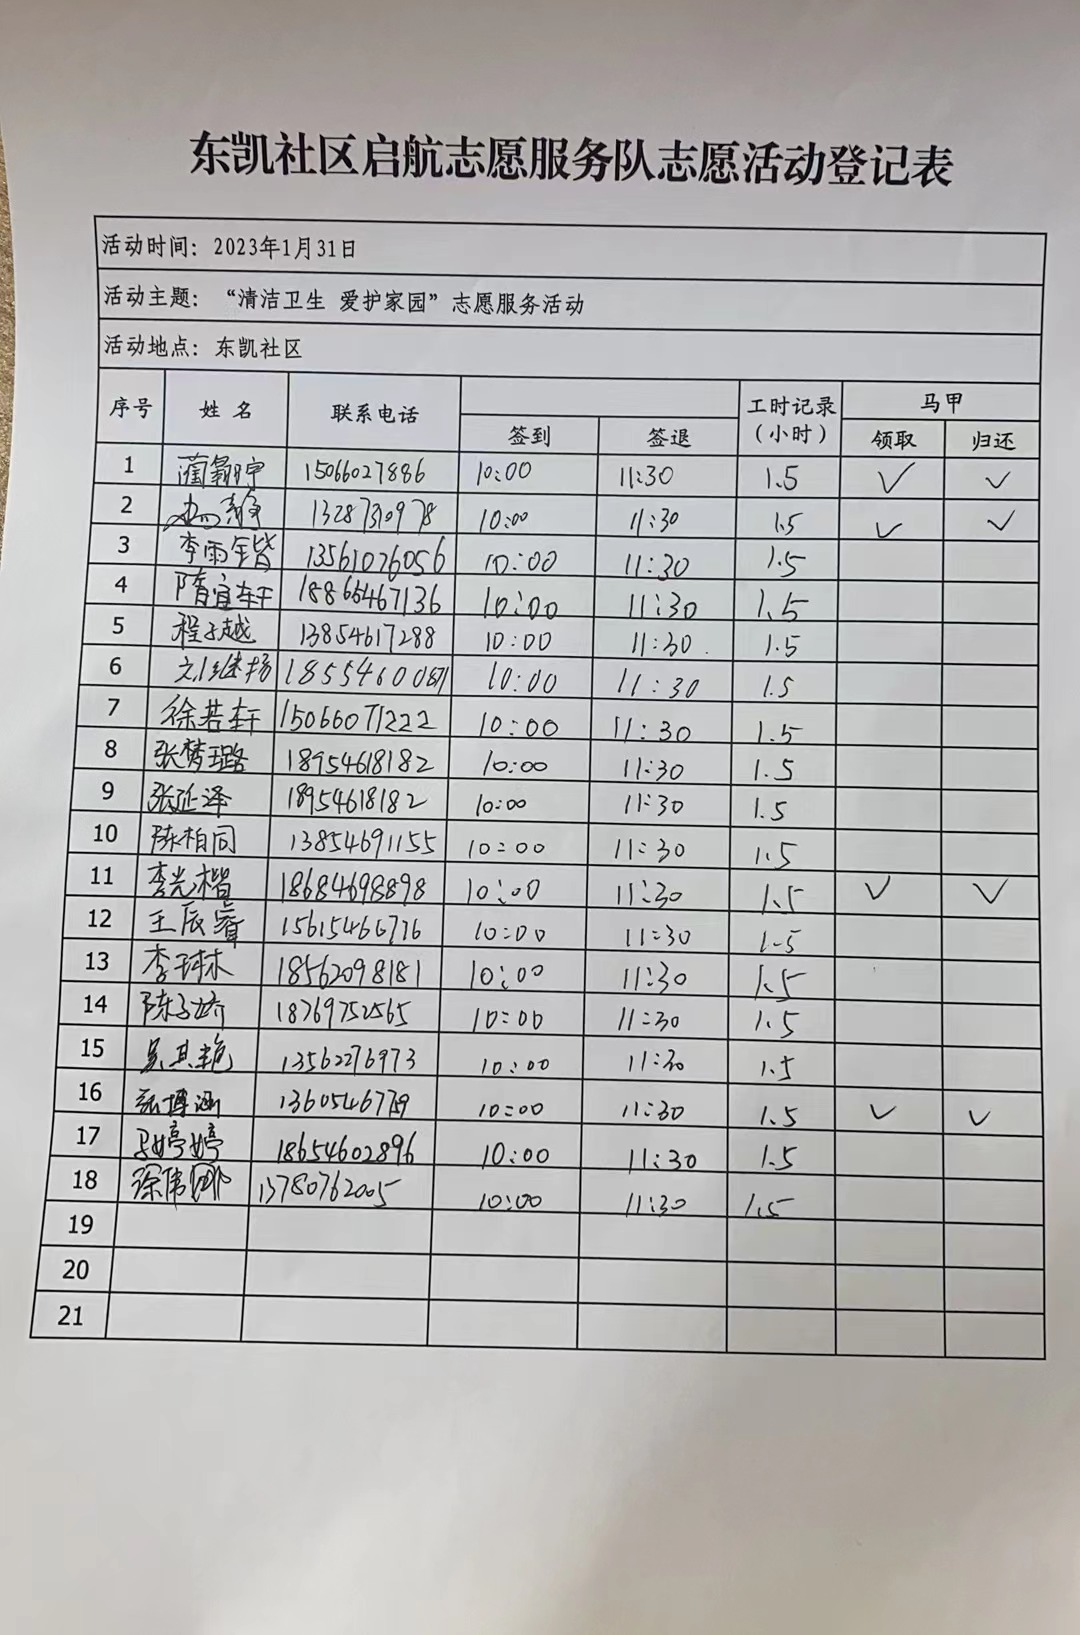 东凯社区启航志愿服务队志愿活动登记表
活动时间：2023年1月31日
活动主题：“清洁卫生 爱护家园”志愿服务活动
活动地点：东凯社区
序号 姓名 联系电话 签到 签退 工时记录（小时） 马甲 领取 归还
1 15066027886 10:00 11:30 1.5 ✓ ✓
2 13287310978 10:00 11:30 1.5 ✓ ✓
3 李雨锴 13561076056 10:00 11:30 1.5
4 隋宜轩 18866467136 10:00 11:30 1.5
5 程子越 13854617288 10:00 11:30 1.5
6 刘继扬 10:00 11:30 1.5
7 徐若轩 15066071222 10:00 11:30 1.5
8 张梦璐 18954618182 10:00 11:30 1.5
9 张延泽 18954618182 10:00 11:30 1.5
10 陈柏同 13854691155 10:00 11:30 1.5
11 李光楷 18684698898 10:00 11:30 1.5 ✓ ✓
12 王辰睿 15615466776 10:00 11:30 1.5
13 18562098181 10:00 11:30 1.5
14 陈子娇 18769752565 10:00 11:30 1.5
15 13562276973 10:00 11:30 1.5
16 张博涵 10:00 11:30 1.5 ✓ ✓
17 马婷婷 18654602896 10:00 11:30 1.5
18 徐伟娜 13780762005 10:00 11:30 1.5
19
20
21